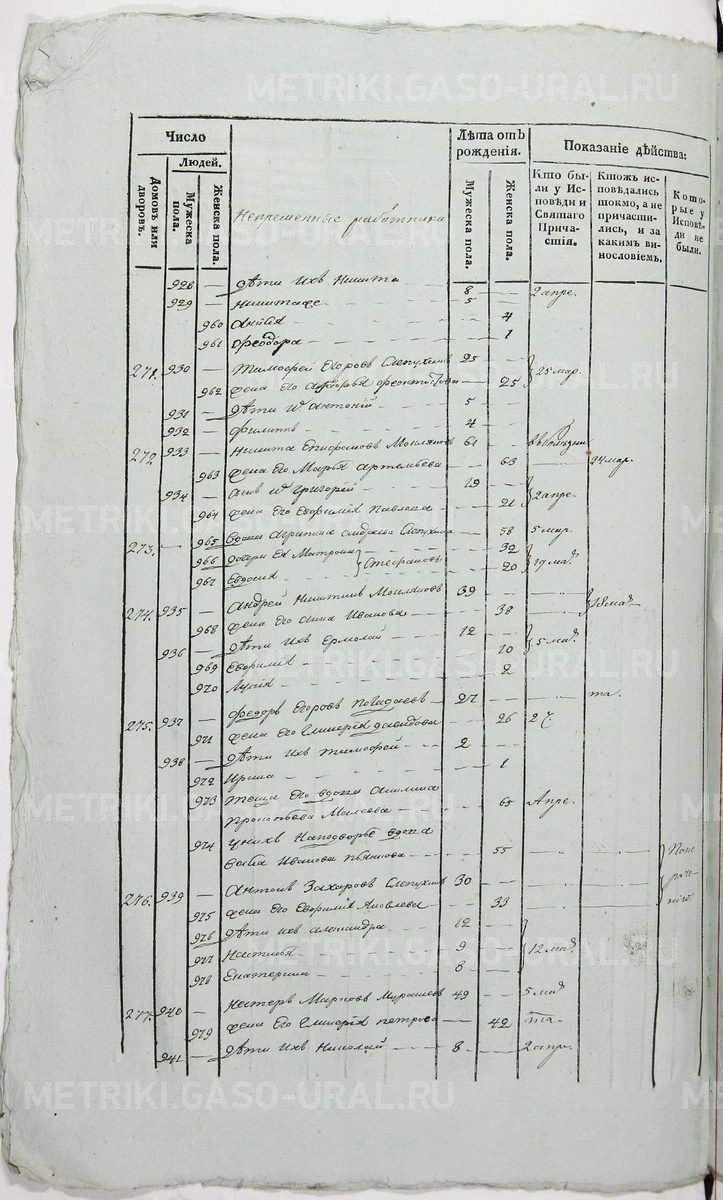 METRIKI.GASO-URAL.RU
Число
Людей.
Домовъ или дворовъ.
Мужеска пола.
Женска пола.
Непременные работники
Лѣта отъ рожденія.
Мужеска пола.
Женска пола.
Показаніе дѣйства:
Кто были у Исповѣди и Святаго Причастія.
Ктожъ исповѣдались токмо, а не причастились, и за какимъ винословіемъ.
Которые у Исповѣди не были.
928 — дѣти ихъ Никита 8 2 апре.
929 — 5
960 4
961 Феодора 1
271. 930 — Тимофей Егоровъ Слепухинъ 25 25 мар.
962 жена его 25
931 — дѣти их Антоній 5
932 — Филиппъ 4
272 933 — Никита Епифановъ 61
963 жена его Марья Артемьева 63 24 мар.
934 — Григорій 19
964 жена его Евфимія Павлова 21 2 апре.
273. — 965 вдова Агрипина Андреева Слепухина 58 5 мар.
966 дочери ея Матрона 32
967 Евдокия Стефановы 20 19 мар
274. 935 — Андрей Никитинъ 39
968 жена его Анна Иванова 38 18 мар
936 — дѣти ихъ Ермолай 12
969 Евфимія 10 5 мар
970 2
275. 937 — Федоръ Егоровъ 27 та.
971 жена его Гликерія Давидова 26 27.
938 — дѣти ихъ Тимофей 2
972 Ирина 1
973 теща его вдова Акилина
Прокопьева Малеева 65 Апре.
974 у нихъ на подворье вдова
Иванова 55
276. 939 — Антонъ Захаровъ Слепухинъ 30
975 жена его Евфимія Яковлева 33
976 дѣти ихъ Александра 12
977 Настасья 9 12 мар
978 Екатерина 6
277. 940 — Нестеръ Марковъ Мурашевъ 49 5 мар
979 жена его Гликерія Петрова 42 та.
941 — дѣти ихъ Николай 8 2 апре.